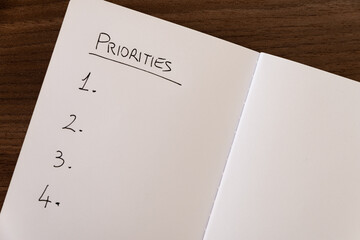 PRIORITIES
1.
2.
3.
4.